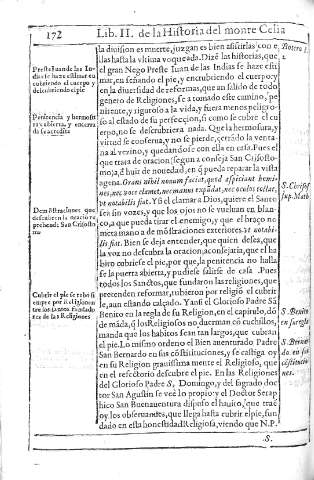 172 Lib. II. de la Historia del monte Celia
la diuision es muerte, juzgan es bien asistirlas con e
llas hasta la vltima voqueada. Dizē las historias, que
el gran Negro Preste Iuan de las Indias se haze esti
mar, en señando el pie, y encubriendo el cuerpo: y
en la diuersidad de reformas, que an salido de todo
genero de Religiones, se a tomado este camino, pe
nitente, y rigurosa la vida, y fuera menos peligro-
so al estado de su perfeccion, si como se cubre el cu
erpo, no se descubriera nada. Que la hermosura, y
virtud se conserua, y no se pierde, cerrãdo la venta
na al vezino, y quedandose con ella en casa. Pues el
que trata de oracion (segun a conseja San Crisosto-
mo, a huir de nouedad, en q̃ pueda reparar la vista
agena. Orans nihil nouum faciat, quod aspiciant homi-
nes, nec voce clamet, nec manus expãdat, nec oculos tollat,
vt notabilis fiat. Ysi el clamar a Dios, quiere el Santo
sea sin vozes, y que los ojos no se vueluan en blan-
co, a que pueda tirar el enemigo, y que el braço no
meta mano a de mõstraciones exteriores. Vt notabi-
lis fiat. Bien se deja entender, que quien desea, que
la voz no descubra la oracion, aconsejaria, que el ha
bito cubriese el pie, por que, la penitencia no halla
se la puerta abierta, y pudiese salirse de casa. Pues
todos los Santos, que fundaron las religiones, que
pretenden reformar, tubieron por religiõ el cubrir
le, aun estando calçados. Yasi el Glorioso Padre Sã
Benito en la regla de su Religion, en el capitulo, dõ
de mãda, q̃ los Religiosos no duerman cõ cuchillos,
manda que los habitos sean tan largos, que cubran
el pie. Lo mismo ordeno el Bien auenturado Padre
San Bernardo en sus cõstituciones, y se castiga oy
en su Religion grauissima mente el Religioso, que
en el refectorio descubre el pie. En las Religiones
del Glorioso Padre S, Domingo, y del sagrado doc
tor San Agustin se vee lo propio: y el Doctor Serap
hico San Buenauentura dispuso el hauito, que trac
oy los obseruantes, que llega hasta cubrir el pie, fun
dado en esta honestidad Religiosa, viendo que N.P.
.S.
Preste Iuan de las In
dias se haze estimar en
cubriendo el cuerpo y
descubriendo el pie
Penitencia y hermosu
ra abierta, y encerra
da se acredita
Demõstraciones que
descubren la oracion
Cubrir el pie se tubo si
empre por religion en
tre los Santos Fundado
res de las Religiones
Botero l.
2
S. Crisost
sup. Math
S. Benito
en su regla
S. Bernar
do en sus
cõstitucio
nes.